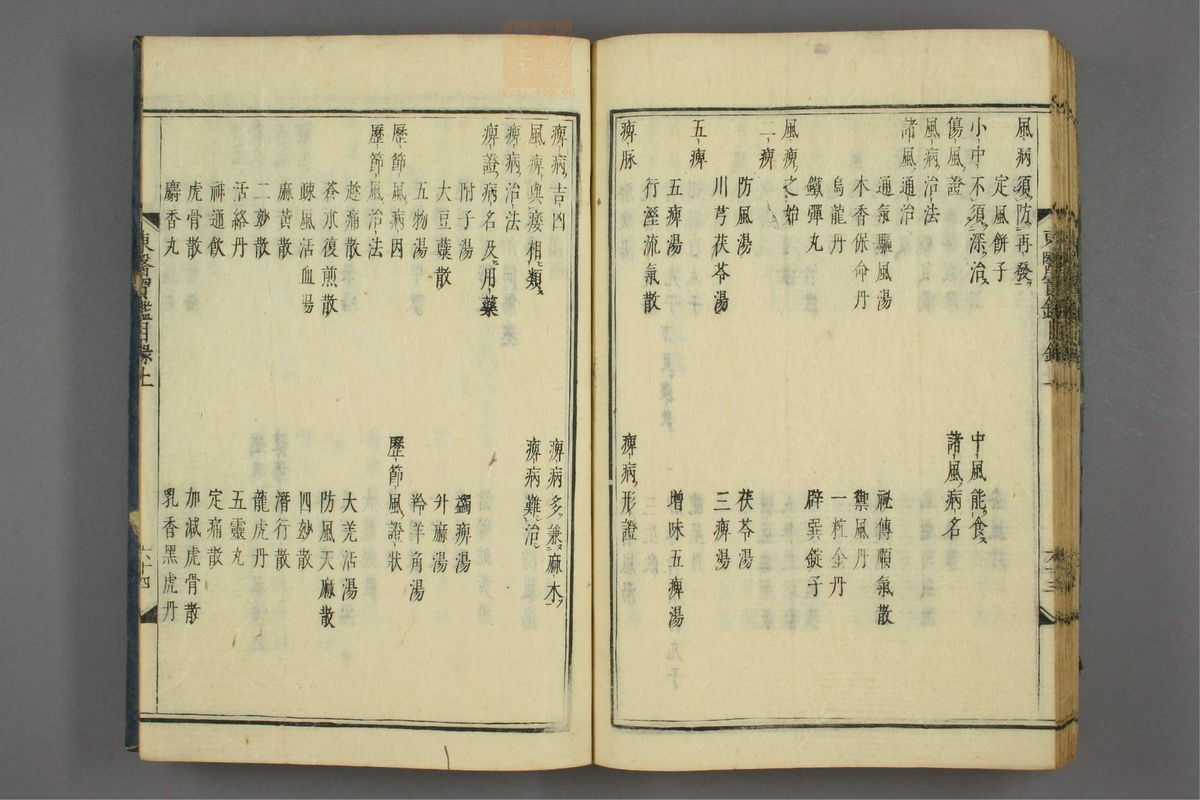 風病須防再發
定風餅子
小中不須深治 中風能食
傷風證 諸風病名
風病治法
諸風通治
通氣驅風湯 祕傳順氣散
木香保命丹 禦風丹
烏龍丹 一粒金丹
鐵彈丸 辟巽錠子
風痺之始
二痺
防風湯 茯苓湯
川芎茯苓湯 三痺湯
五痺
五痺湯 增味五痺湯
行溼流氣散
痺脉 痺病形證
痺病吉凶 痺病多兼麻木
風痺與痿相類 痺病難治
痺病治法
痺證病名及用藥
附子湯 蠲痺湯
大豆蘗散 升麻湯
五物湯 羚羊角湯
歷節風病因 歷節風證狀
歷節風治法
趁痛散 大羌活湯
蒼朮復煎散 防風天麻散
疎風活血湯 四妙散
麻黃散 潛行散
二妙散 龍虎丹
活絡丹 五靈丸
神通飲 定痛散
虎骨散 加減虎骨散
麝香丸 乳香黑虎丹
東醫寶鑑目錄上 六十四